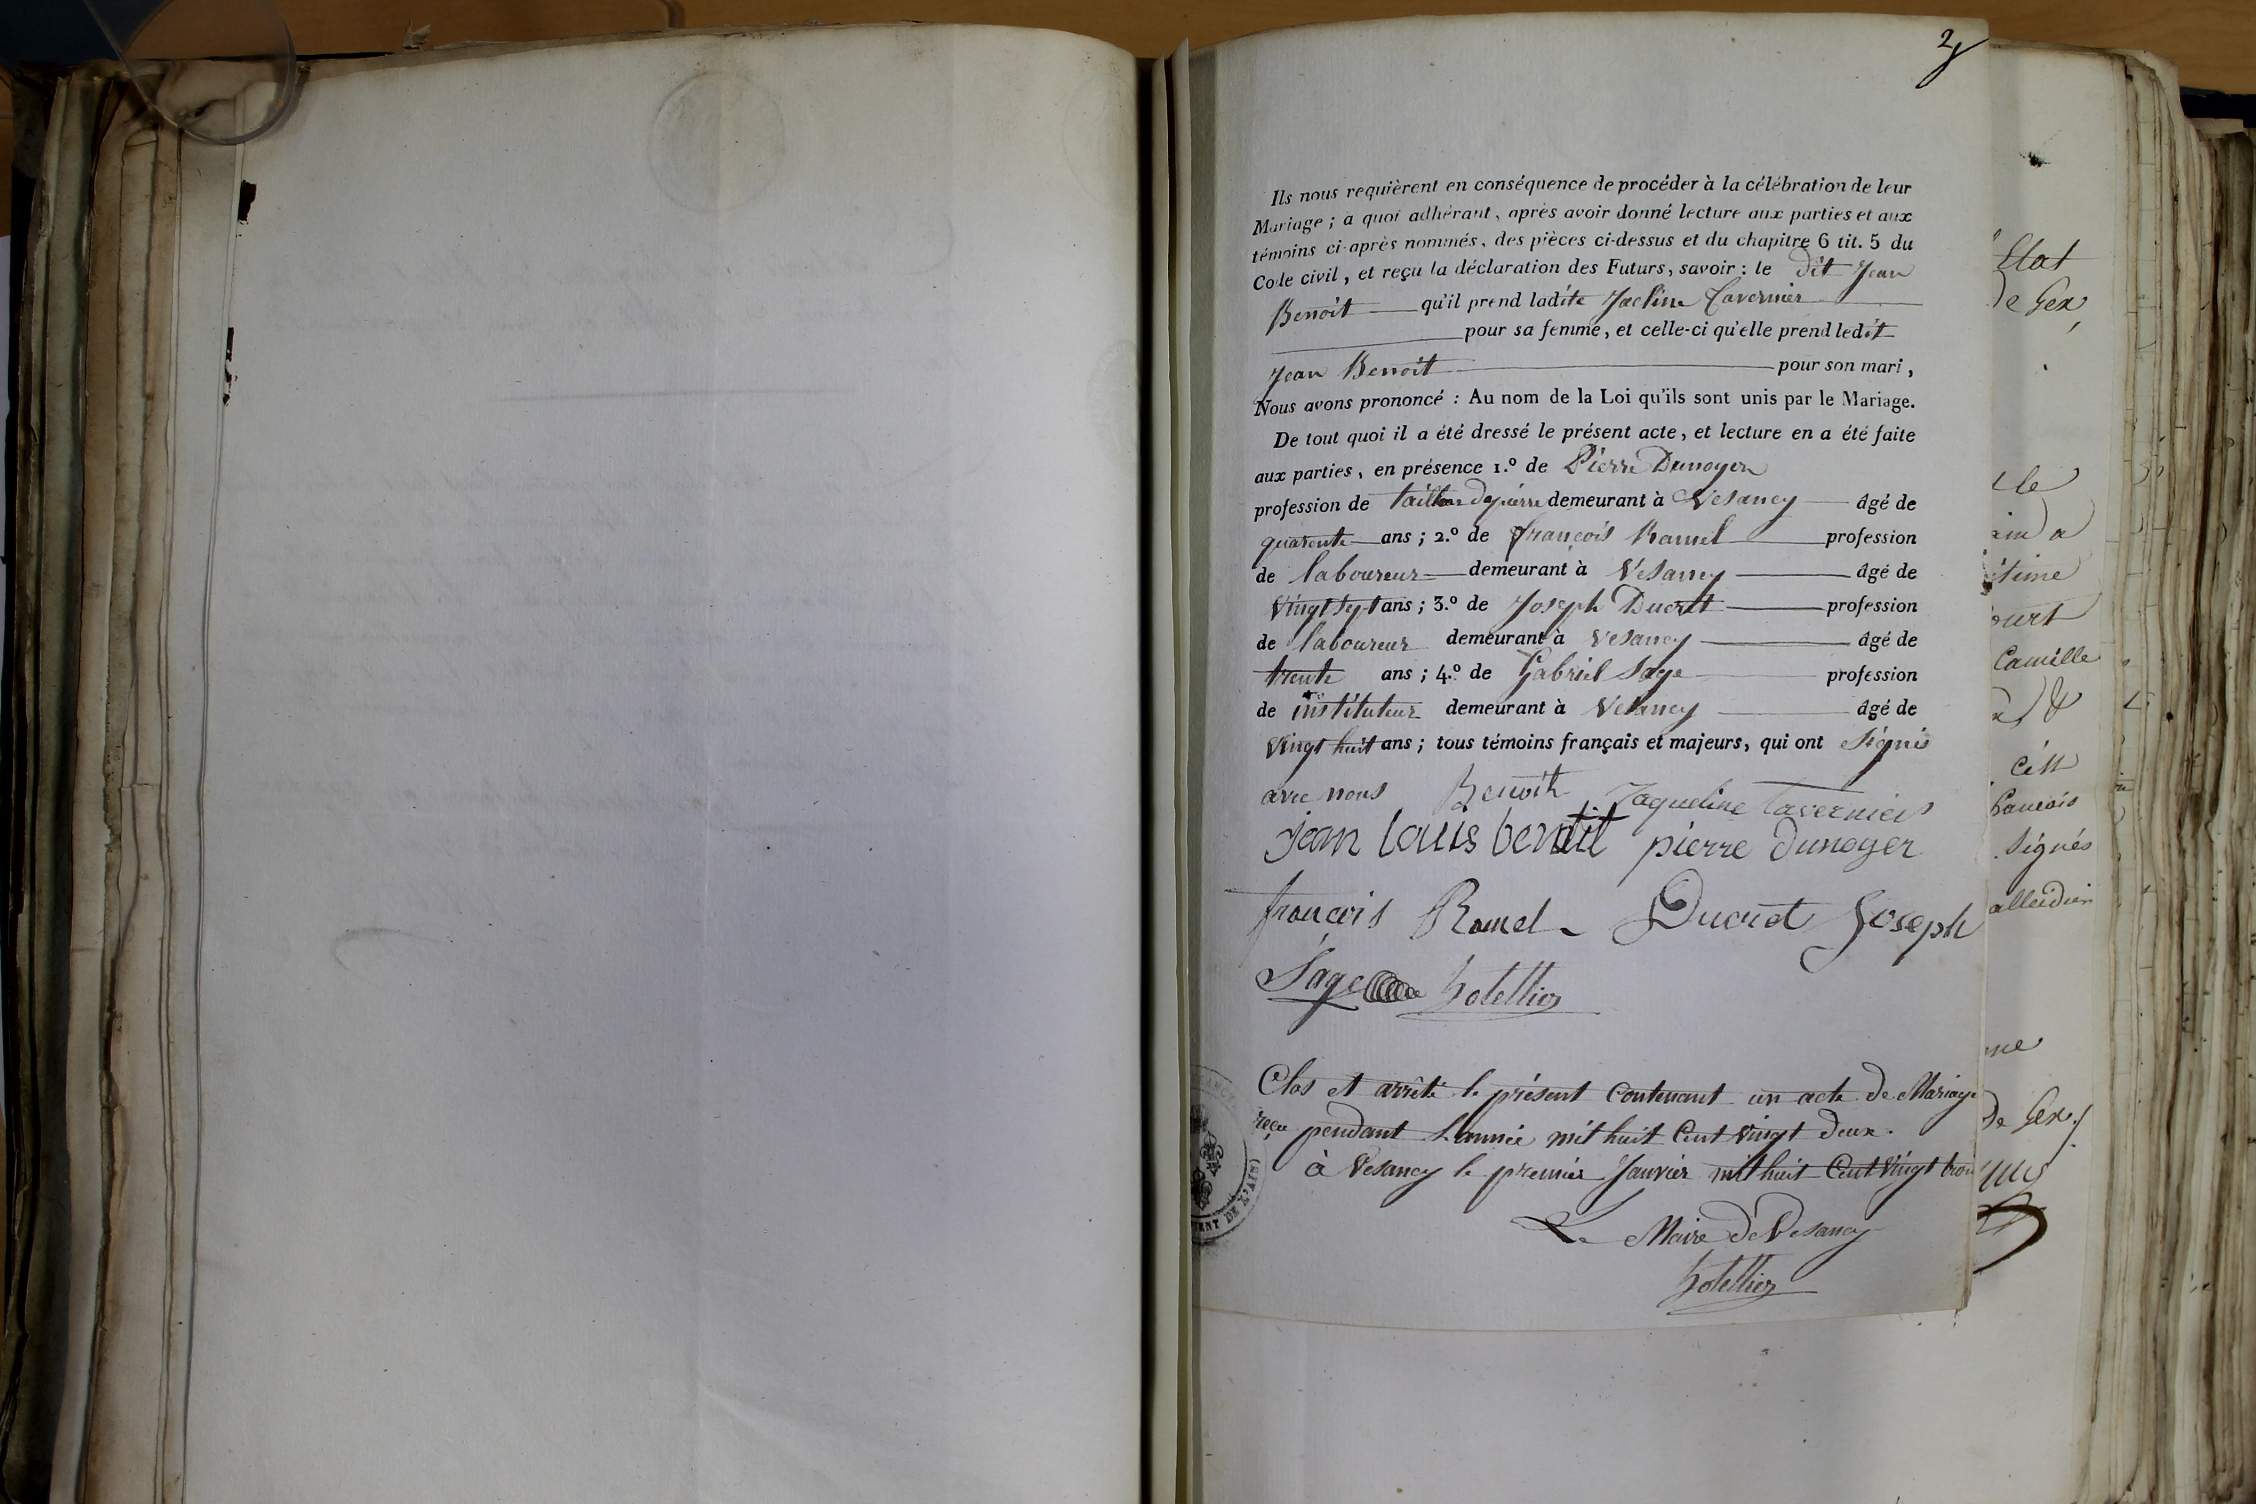 2
Ils nous requièrent en conséquence de procéder à la célébration de leur
Mariage ; à quoi adhérant, après avoir donné lecture aux parties et aux
témoins ci-après nommés, des pièces ci-dessus et du chapitre 6 tit. 5 du
Code civil, et reçu la déclaration des Futurs, savoir : le dit Jean
Benoit qu'il prend ladite Jacline Tavernier
pour sa femme, et celle-ci qu'elle prend ledit
Jean Benoit pour son mari,
Nous avons prononcé : Au nom de la Loi qu'ils sont unis par le Mariage.
De tout quoi il a été dressé le présent acte, et lecture en a été faite
aux parties, en présence 1.º de Pierre Dunoyer
profession de tailleur de pierre demeurant à Vesancy âgé de
quarente ans ; 2.º de françois Ramel profession
de laboureur demeurant à Vesancy âgé de
vingt sept ans ; 3.º de Joseph Ducret profession
de laboureur demeurant à Vesancy âgé de
trente ans ; 4.º de Gabriel Sage profession
de instituteur demeurant à Vesancy âgé de
vingt huit ans ; tous témoins français et majeurs, qui ont signés
avec nous Benoit Jaqueline Taverniers
jean louis benoit pierre dunoyer
françois Ramel Ducret Joseph
Sage hotellier
Clos et arrêté le présent contenant un acte de Mariage
reçu pendant L'année mil huit Cent vingt deux.
à Vesancy le premier Janvier mil huit Cent vingt trois
Le Maire de Vesancy
hotellier
Etat
de Gex,
le
Camille
françois
signés
de Gex